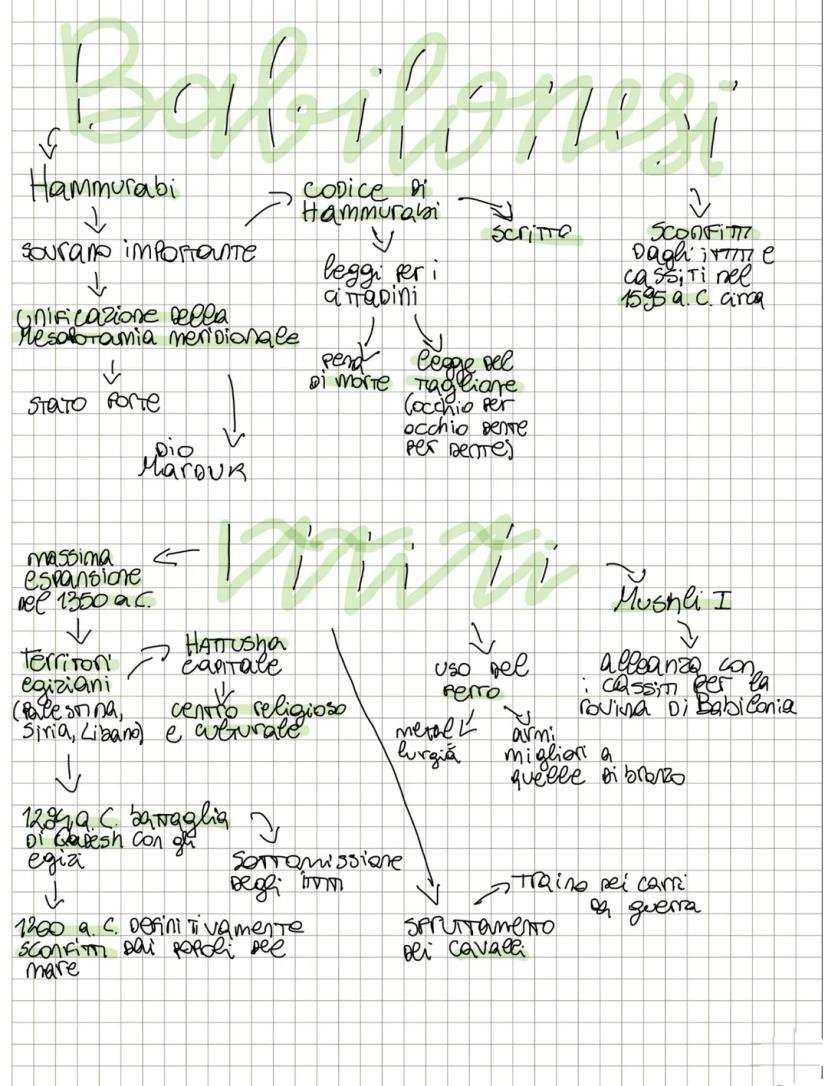 Babilonesi
Hammurabi
sovrano importante
unificazione della
Mesopotamia meridionale
stato forte
Dio
Marduk
codice di
Hammurabi
scritto
leggi per i
cittadini
pena
di morte
legge del
taglione
(occhio per
occhio dente
per dente)
sconfitti
Dagli ittiti e
cassiti nel
1595 a.C. circa
Ittiti
massima
espansione
nel 1350 a.C.
territori
egiziani
(Palestina,
Siria, Libano)
Hattusha
capitale
centro religioso
e culturale
1284 a.C. battaglia
di Qadesh con gli
egizi
sottomissione
degli ittiti
1200 a.C. definitivamente
sconfitti dai popoli del
mare
uso del
ferro
metal
lurgia
armi
migliori a
quelle di bronzo
sfruttamento
dei cavalli
traino dei carri
da guerra
Mushli I
alleanza con
i cassiti per la
rovina di Babilonia